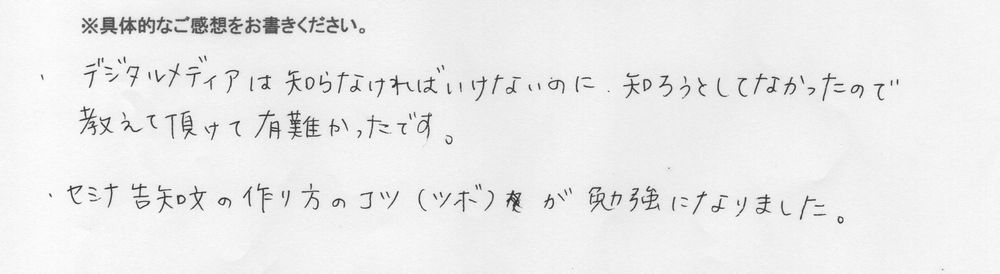 ※具体的なご感想をお書きください。
・デジタルメディアは知らなければいけないのに、知ろうとしてなかったので
教えて頂けて有難かったです。
・セミナ告知文の作り方のコツ（ツボ）が勉強になりました。